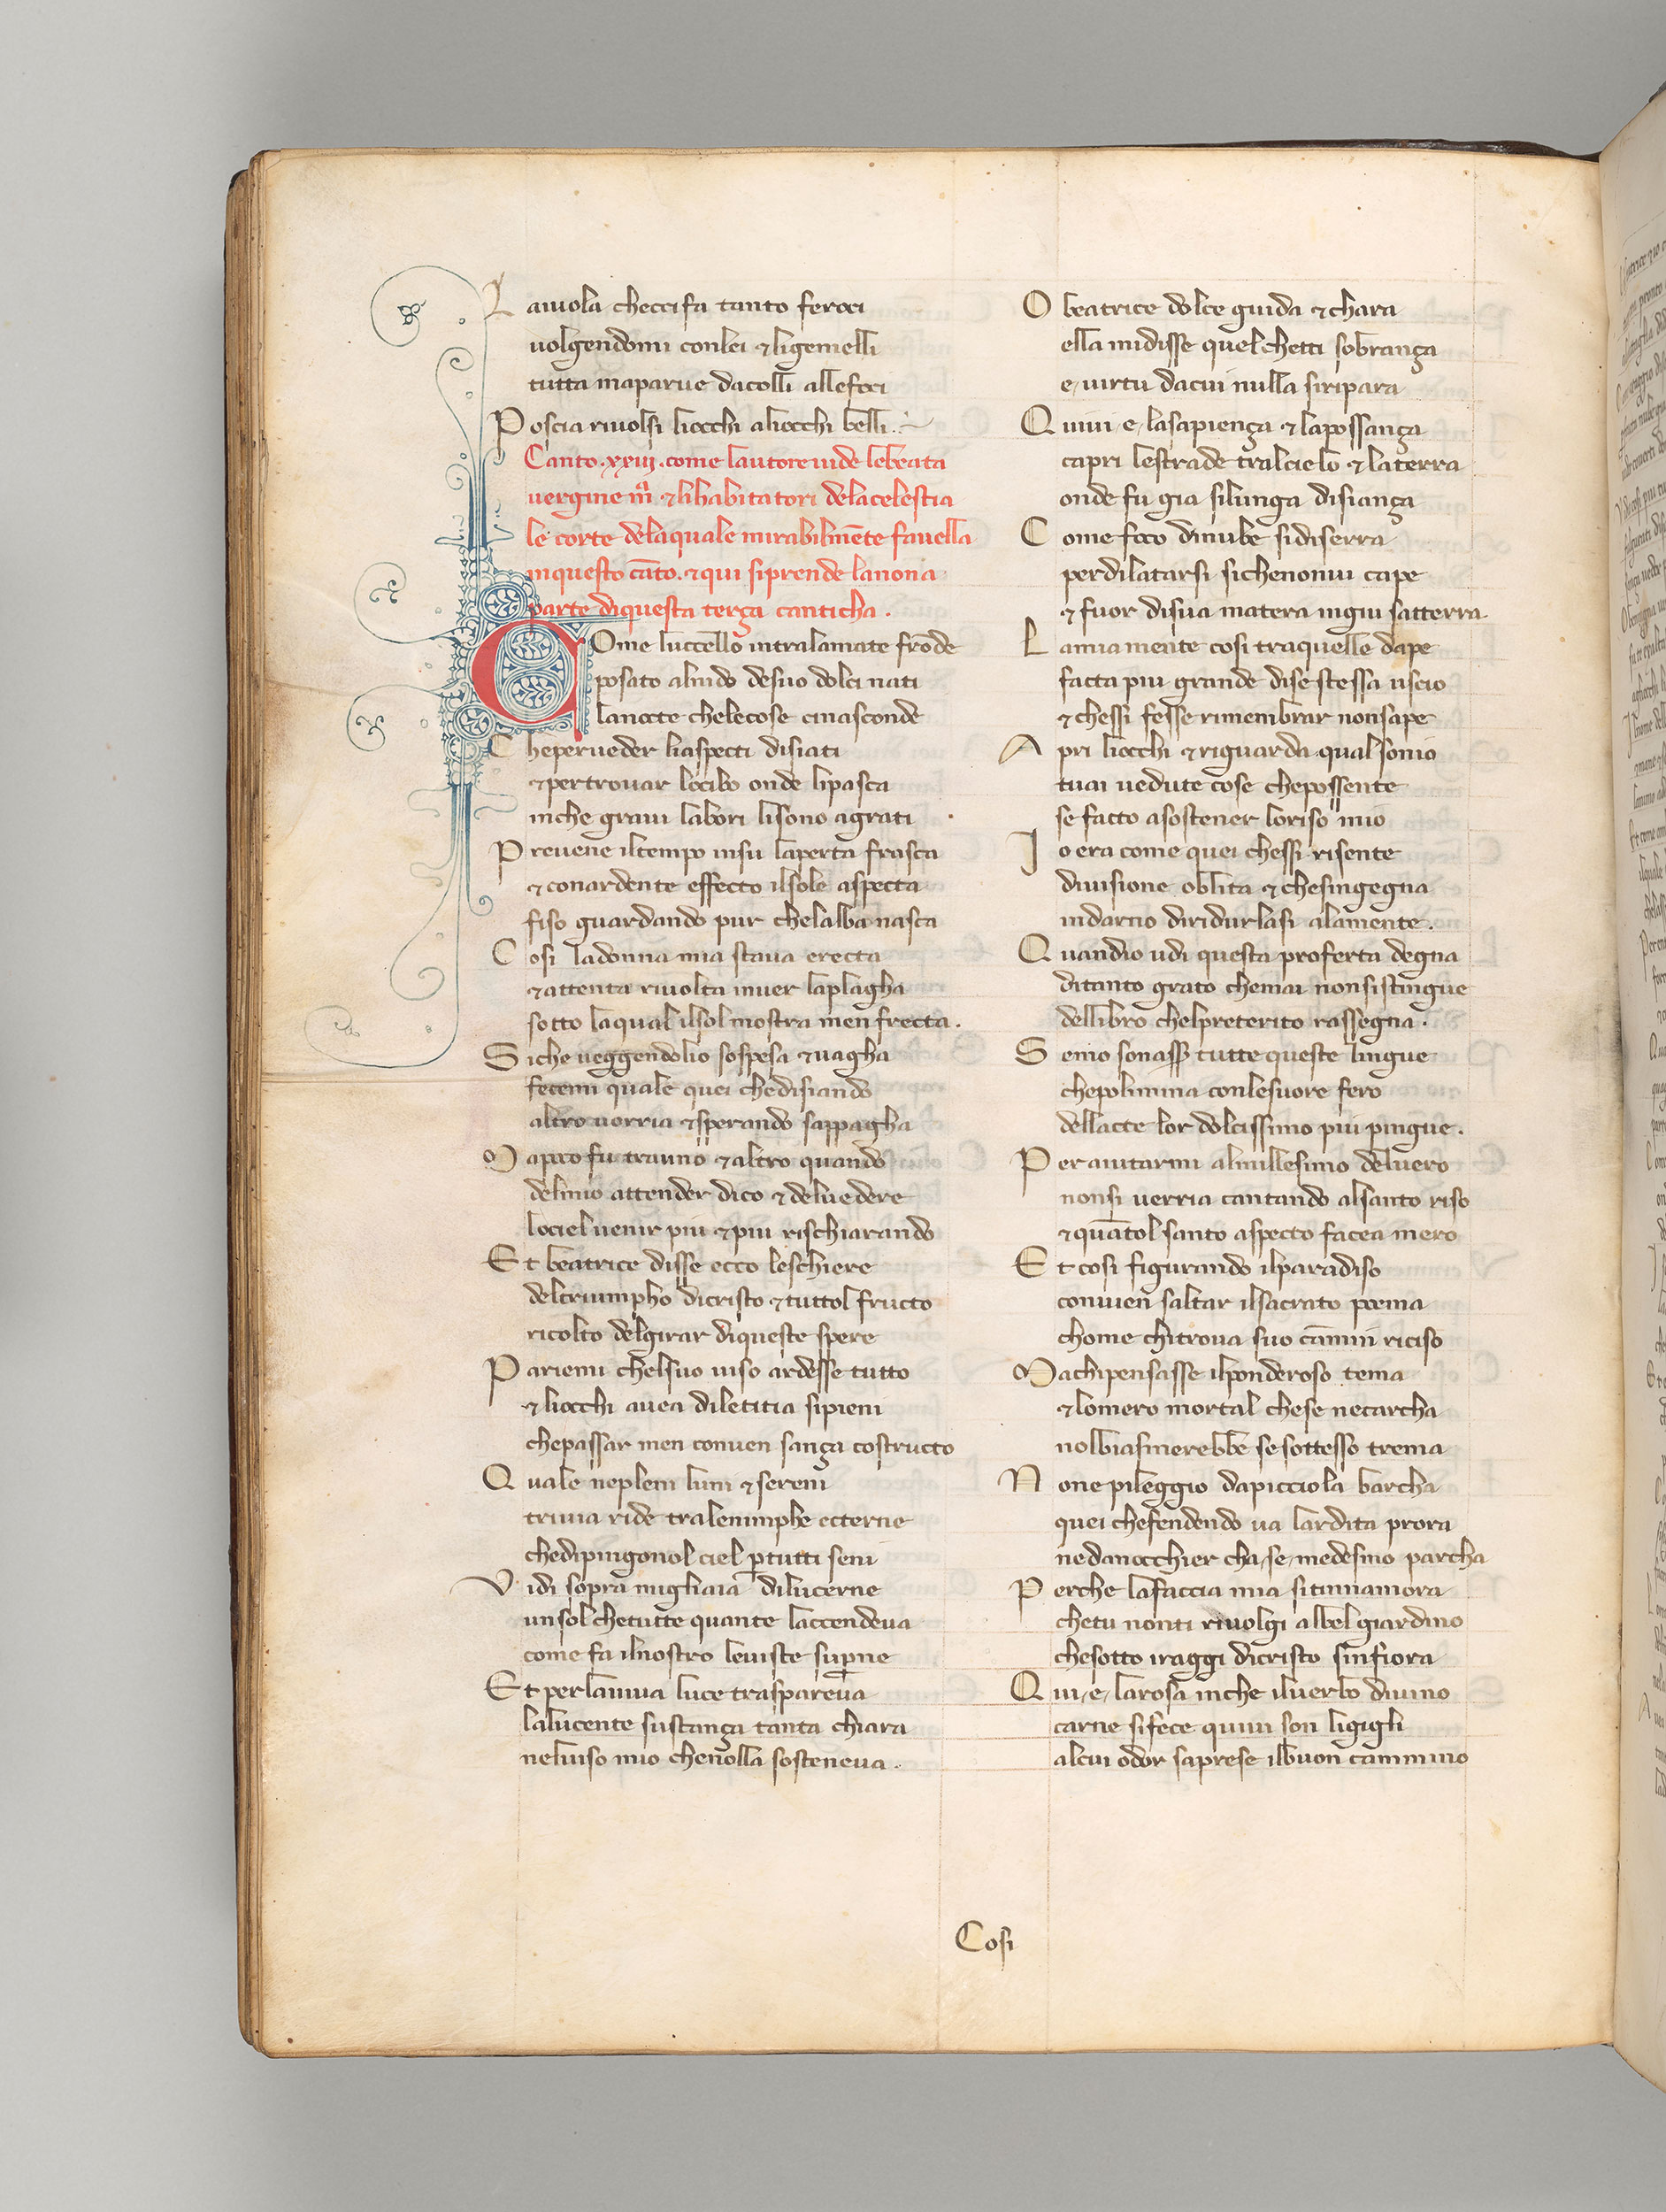 Laiuola checcifa tanto feroci
uolgendomi conlei ⁊ligemelli
tutta maparue dacolli allefoci
Poscia riuolsi liocchi aliocchi belli.
Canto .xxiij. come lautore uide lebeata
uergine mͣ ⁊lihabitatori delacelestia
le corte delaquale mirabilmēte fauella
inquesto cāto. ⁊qui siprende lanona
parte diquesta terça canticha.
COme luccello intralamate frōde
posato alnido desuo dolci nati
lanocte chelecose cinasconde
Cheperueder liaspecti disiati
⁊pertrouar locibo onde lipasca
inche graui labori lisono agrati
Preuene iltempo insu laperta frasca
⁊conardente effecto ilsole aspecta
fiso guardando pur chelalba nasca
Cosi ladonna mia staua erecta
⁊attenta riuolta inuer laplagha
sotto laqual ilsol mostra men frecta.
Siche ueggendolio sospesa ⁊uagha
fecemi quale quei chedisiando
altro uorria ⁊sperando sappagha
Mapoco fu trauno ⁊altro quando
delmio attender dico ⁊deluedere
lociel uenir piu ⁊piu rischiarando
Et beatrice disse ecco leschiere
deltriumpho dicristo ⁊tuttol fructo
ricolto delgirar diqueste spere
Pariemi chelsuo uiso ardesse tutto
⁊liocchi auea diletitia sipieni
chepassar men conuen sança costructo
Quale neplenilunii ⁊sereni
triuia ride tralenimphe etterne
chedipingonol ciel ꝑtutti seni
Vidi sopra migliaia dilucerne
unsol chetutte quante laccendeua
come fa ilnostro leuiste suꝑne
Et perlauiua luce traspareua
lalucente sustança tanta chiara
neluiso mio chenolla sosteneua.
O beatrice dolce guida ⁊chara
ella midisse quelchetti sobrança
e uirtu dacui nulla siripara
Quiui e lasapiença ⁊lapossança
capri lestrade tralcielo ⁊laterra
onde fu gia silunga disiança
Come foco dinube sidiserra
perdilatarsi sichenonui cape
⁊fuor disua matera ingiu satterra
Lamia mente cosi traquelle dape
facta piu grande dise stessa uscio
⁊chessi fesse rimembrar nonsape
Apri liocchi ⁊riguarda qualsonio
tuai uedute cose chepossente
se facto asostener loriso mio
Io era come quei chessi risente
diuisione oblita ⁊chesingegna
indarno diridurlasi alamente.
Quandio udi questa proferta degna
ditanto grato chemai nonsistingue
dellibro chelpreterito rassegna.
Semo sonasser tutte queste lingue
chepolimina conlesuore fero
dellacte lor dolcissimo piu pingue.
Per aiutarmi almillesimo deluero
nonsi uerria cantando alsanto riso
⁊quātol santo aspecto facea mero
Et cosi figurando ilparadiso
conuen saltar ilsacrato poema
chome chitroua suo cāmin riciso
Machipensasse ilponderoso tema
⁊lomero mortal chese necarcha
nolbiasmerebbe sesottesso trema
None pileggio dapicciola barcha
quei chefendendo ua lardita prora
nedanocchier cha se medesmo parcha
Perche lafaccia mia sitinnamora
chetu nonti riuolgi albel giardino
chesotto iraggi dicristo sinfiora
Qui e larosa inche iluerbo diuino
carne sifece quiui son ligigli
alcui odor saprese ilbuon cammino
Cosi